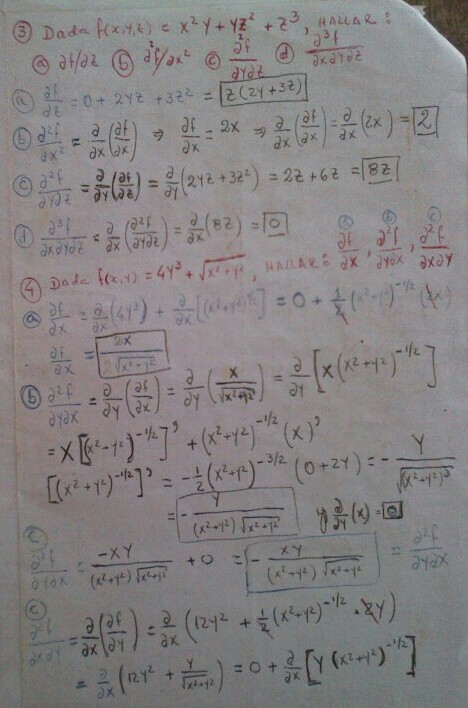 ③ Dada f(x,y,z) = x²y + yz² + z³, HALLAR:
ⓐ ∂f/∂z ⓑ ∂²f/∂x² ⓒ ∂²f/∂y∂z ⓓ ∂³f/∂x∂y∂z
ⓐ ∂f/∂z = 0 + 2yz + 3z² = z(2y+3z)
ⓑ ∂²f/∂x² = ∂/∂x (∂f/∂x) ⇒ ∂f/∂x = 2x ⇒ ∂/∂x (∂f/∂x) = ∂/∂x (2x) = 2
ⓒ ∂²f/∂y∂z = ∂/∂y (∂f/∂z) = ∂/∂y (2yz + 3z²) = 2z + 6z = 8z
ⓓ ∂³f/∂x∂y∂z = ∂/∂x (∂²f/∂y∂z) = ∂/∂x (8z) = 0
④ Dada f(x,y) = 4y³ + √(x²+y²), HALLAR: ⓐ ∂f/∂x, ⓑ ∂²f/∂y∂x, ⓒ ∂²f/∂x∂y
ⓐ ∂f/∂x = ∂/∂x (4y³) + ∂/∂x [(x²+y²)^1/2] = 0 + 1/2 (x²+y²)^-1/2 (2x)
∂f/∂x = 2x / 2√(x²+y²)
ⓑ ∂²f/∂y∂x = ∂/∂y (∂f/∂x) = ∂/∂y (x/√(x²+y²)) = ∂/∂y [x(x²+y²)^-1/2]
= x[(x²+y²)^-1/2]' + (x²+y²)^-1/2 (x)'
[(x²+y²)^-1/2]' = -1/2 (x²+y²)^-3/2 (0+2y) = - y/√(x²+y²)³
= - y/(x²+y²)√(x²+y²) y ∂/∂y (x) = 0
∂²f/∂y∂x = -xy/(x²+y²)√(x²+y²) + 0 = - xy/(x²+y²)√(x²+y²) = ∂²f/∂y∂x
ⓒ ∂²f/∂x∂y = ∂/∂x (∂f/∂y) = ∂/∂x (12y² + 1/2 (x²+y²)^-1/2 · 2y)
= ∂/∂x (12y² + y/√(x²+y²)) = 0 + ∂/∂x [y(x²+y²)^-1/2]